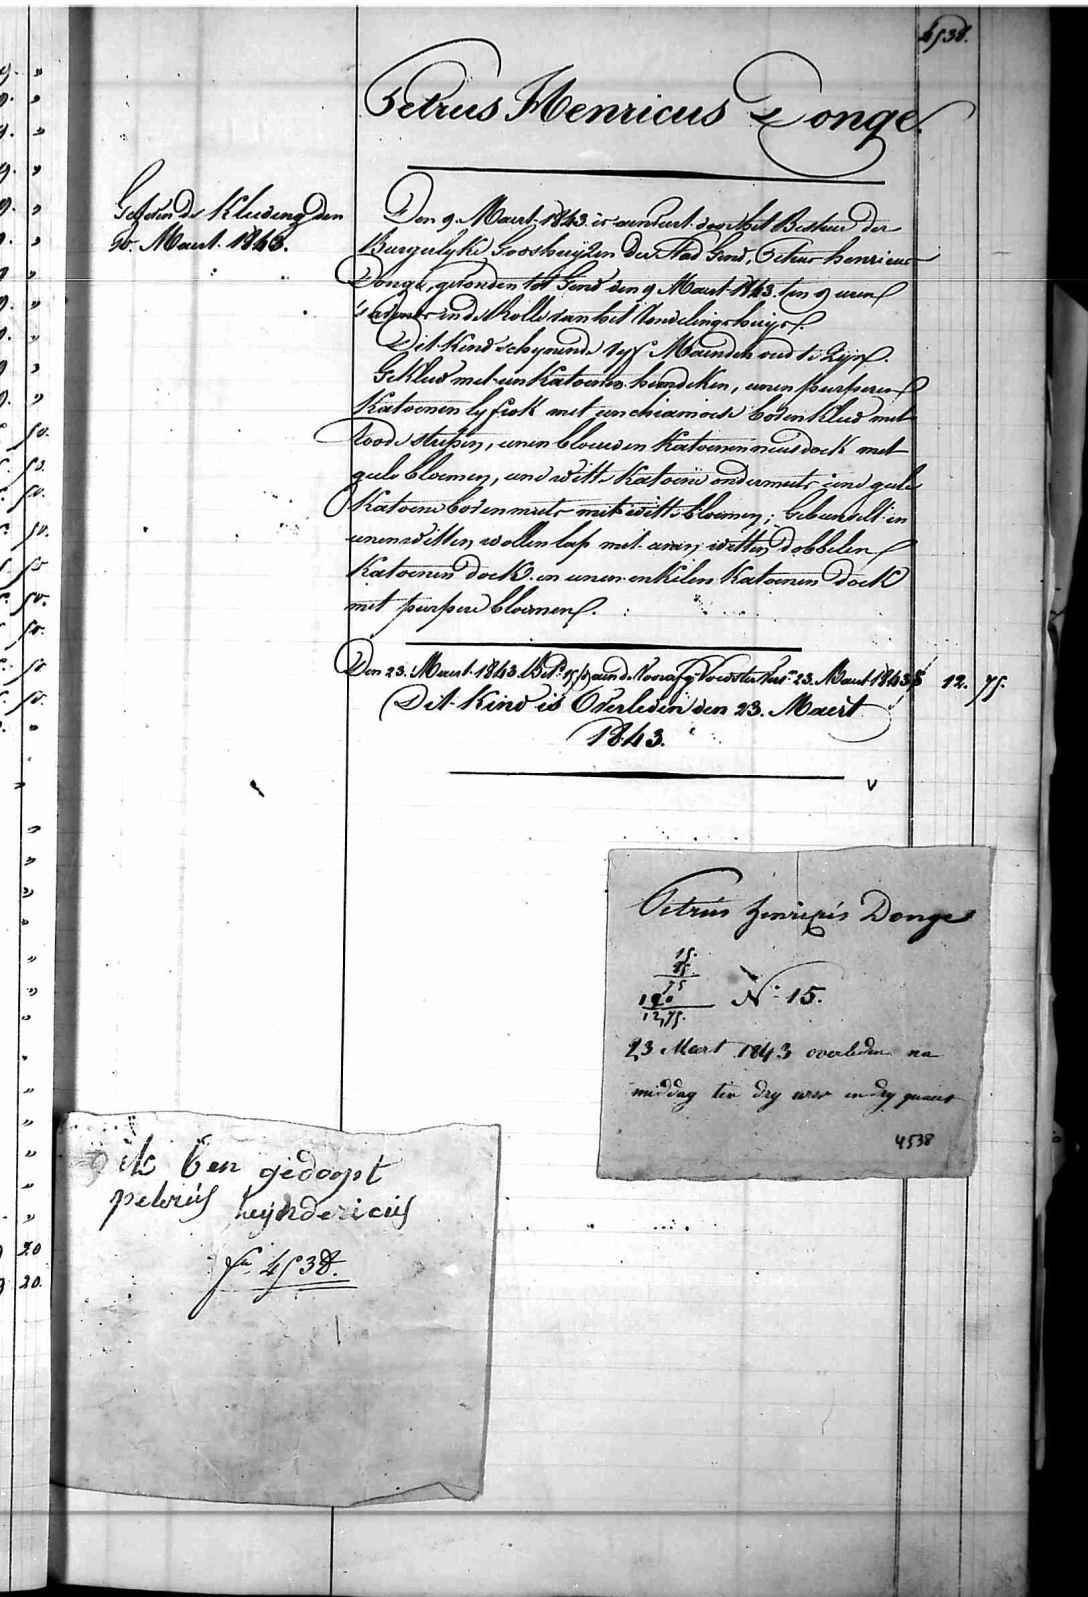 4538.
Petrus Henricus Donge.
Geheven de Kleding den
10. Maert. 1843.
Den 9. Maert 1843. is aenveert door het Bestuer der
Burgerlyke Godshuyzen der Stad Gend, Petrus henricus
Donge, gevonden tot Gend den 9 Maert 1843. ten 9 uren
's avonds in de Rolle van het Vondelingshuys.
Dit Kind schynende vyf Maenden oud te zyn.
Gekleed met een Katoenen hemdeken, eenen purperen
Katoenen lyfrok met een chiamoise bovenkleed met
roode strepen, eenen blouwen Katoenen neusdoek met
geele bloemen, eene witte Katoene ondermuts eene geele
Katoene bovenmuts met witte bloemen; Gebunselt in
eenen witten wollen lap met eenen witten dobbelen
Katoenen doek en eenen enkelen Katoenen doek
met purpere bloemen.
Den 23. Maert 1843. 15 aen de Voorsz. Voedster 23. Maert 1843 12. 75.
Dit Kind is Overleden den 23. Maert
1843.
v
Petrus henricus Donge
15.
85
75
120
12,75.
N.° 15.
23 Mært 1843 overleden na
middag ten dry uren en dry quaert
4538
ik ben gedoopt
petrus heyndericus
4538.